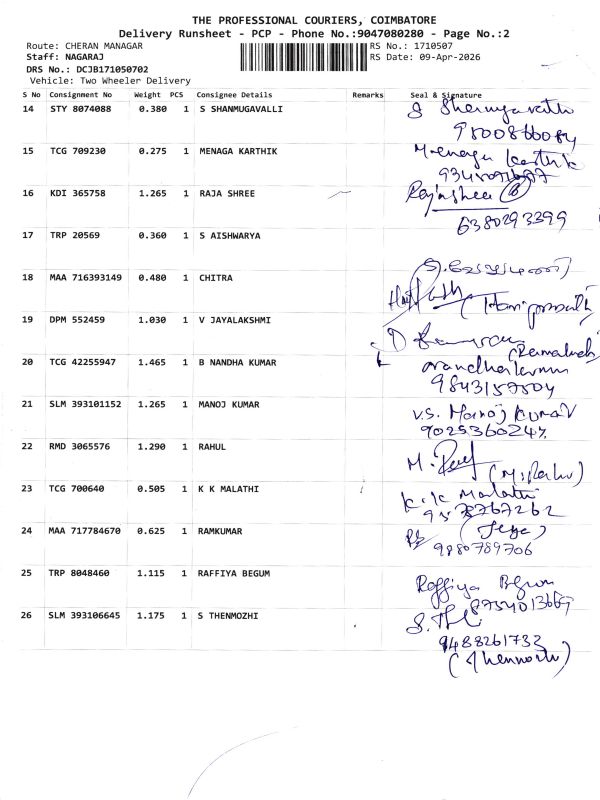 THE PROFESSIONAL COURIERS, COIMBATORE
Delivery Runsheet - PCP - Phone No.:9047080280 - Page No.:2
Route: CHERAN MANAGAR
RS No.: 1710507
Staff: NAGARAJ
RS Date: 09-Apr-2026
DRS No.: DCJB171050702
Vehicle: Two Wheeler Delivery
S No Consignment No Weight PCS Consignee Details Remarks Seal & Signature
14 STY 8074088 0.380 1 S SHANMUGAVALLI
15 TCG 709230 0.275 1 MENAGA KARTHIK Menaga Karthik
16 KDI 365758 1.265 1 RAJA SHREE Rajashree
6380293399
17 TRP 20569 0.360 1 S AISHWARYA
18 MAA 716393149 0.480 1 CHITRA
19 DPM 552459 1.030 1 V JAYALAKSHMI
20 TCG 42255947 1.465 1 B NANDHA KUMAR
9843157504
21 SLM 393101152 1.265 1 MANOJ KUMAR V.S. Manoj Kumar
22 RMD 3065576 1.290 1 RAHUL
23 TCG 700640 0.505 1 K K MALATHI K.K Malathi
24 MAA 717784670 0.625 1 RAMKUMAR
9880789706
25 TRP 8048460 1.115 1 RAFFIYA BEGUM Raffiya Begum
26 SLM 393106645 1.175 1 S THENMOZHI
9488261732